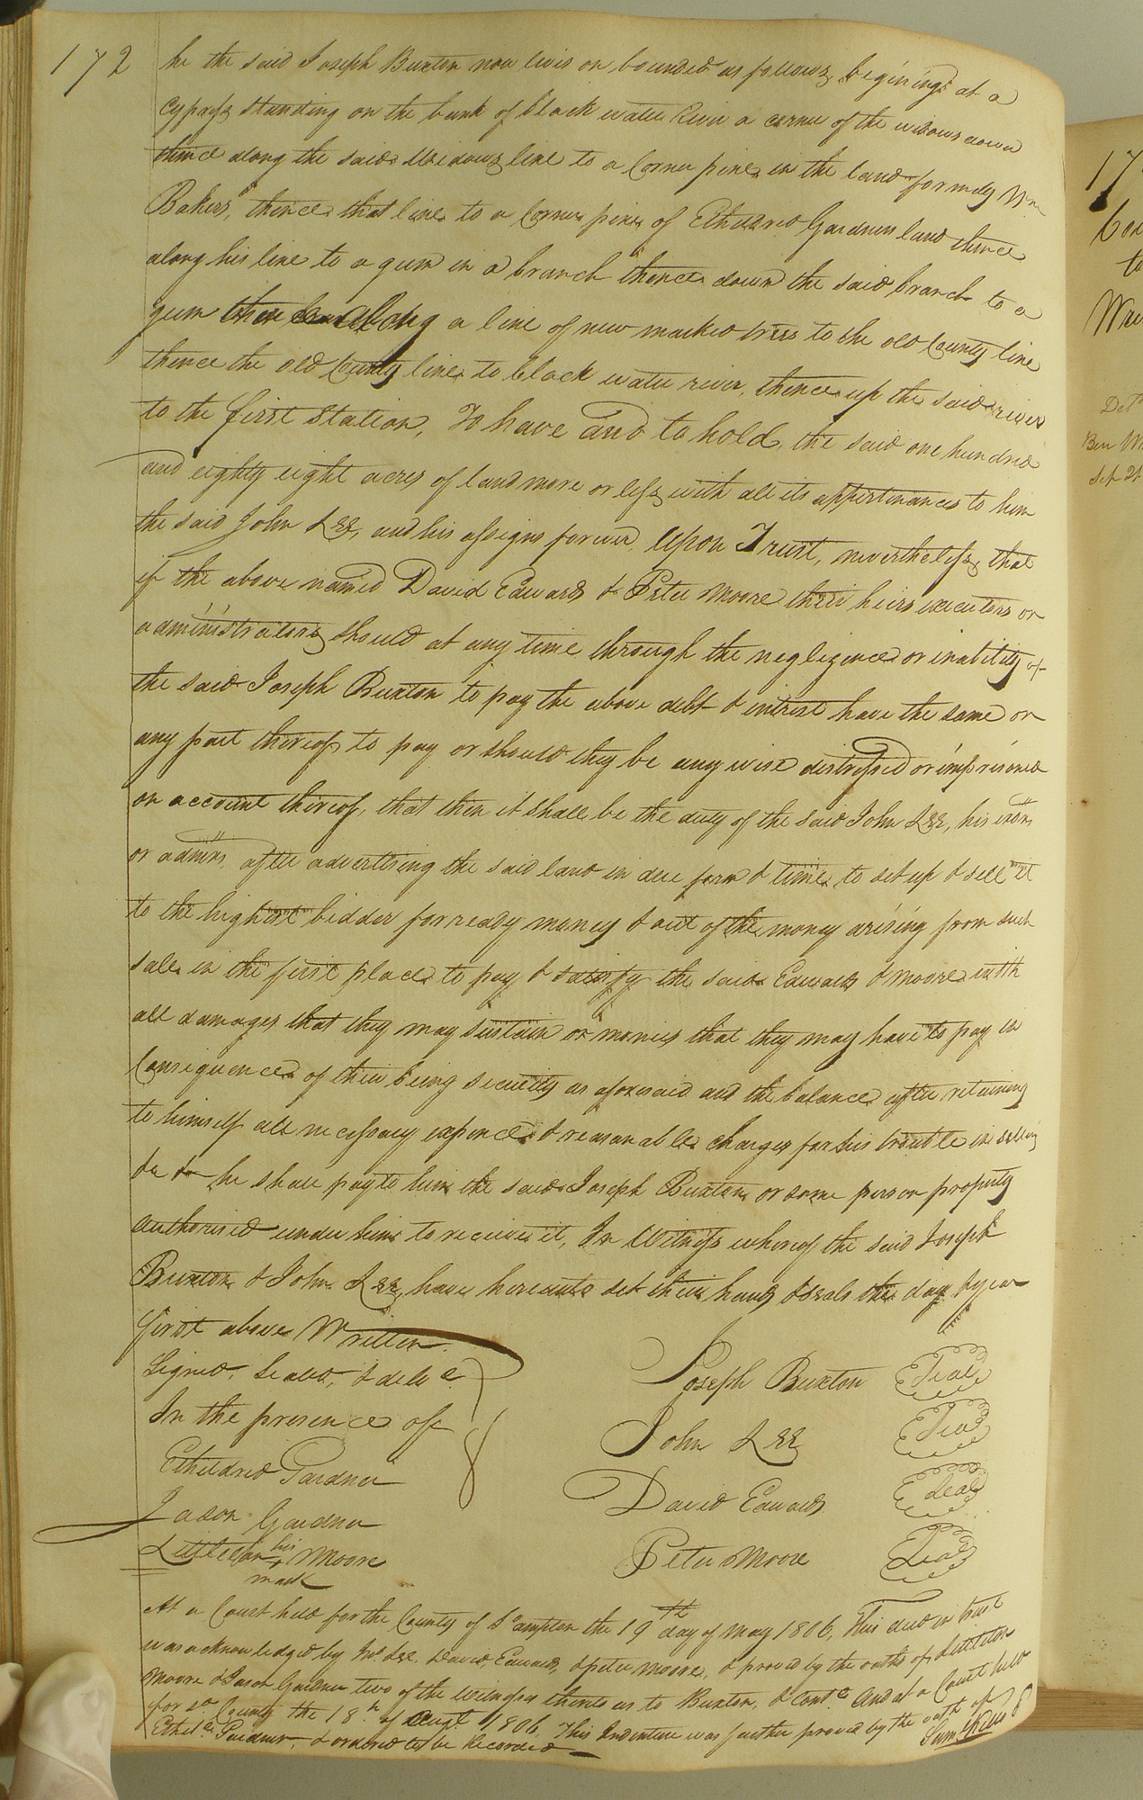 172
he the said Joseph Buxton now lives on bounded as follows, begining at a
cypress standing on the bank of black water River a corner of the widows dower
thence along the said Widows line to a Corner pine in the land formerly Wm
Bakers, thence that line to a Corner pine of Etheldred Gardners land thence
along his line to a gum in a branch thence down the said branch to a
gum then along a line of new marked trees to the old County line
thence the old County line to black water river, thence up the said river
to the first Station, To have and to hold, the said one hundred
and eighty eight acres of land more or less with all its appertinances to him
the said John Lee, and his assigns forever Upon Trust, nevertheless, that
if the above named David Edwards & Peter Moore their heirs executors or
administrators should at any time through the negligence or inability of
the said Joseph Buxton to pay the above debt & intrest have the same or
any part thereof to pay or should they be any wise distressed or imprisoned
on account thereof, that then it shall be the duty of the said John Lee, his exors
or admrs after advertising the said land in due form & time to set up & sell it
to the highest bidder for ready money & out of the money arising from such
sale in the first place to pay & satisfy the said Edwards & Moore with
all damages that they may sustain or monies that they may have to pay in
Consequence of their being security as aforesaid and the balance after retaining
to himself all necessary expence & reasonable charges for his trouble in selling
&c he shall pay to him the said Joseph Buxton or some person properly
authorised under him to receive it, In Witness whereof the said Joseph
Buxton & John Lee have hereunto set their hands & seals the day & year
first above Written
Signed, Sealed, & deld
In the presence of
Etheldred Gardner
Jason Gardner
Littleton his Moore
mark
Joseph Buxton Seal
John Lee Seal
David Edwards Seal
Peter Moore Seal
At a Court held for the County of S'ampton the 19th day of May 1806, This deed in trust
was acknowledged by Jno Lee, David Edwards, & peter Moore, & proved by the oaths of Littleton
Moore & Jason Gardner two of the witnesses thereto as to Buxton, & Contd And at a Court held
for sd County the 18th of Augt. 1806. This Indenture was further proved by the oath of
Etheld. Gardner, & ordered to be Recorded
17
Wm
Ben